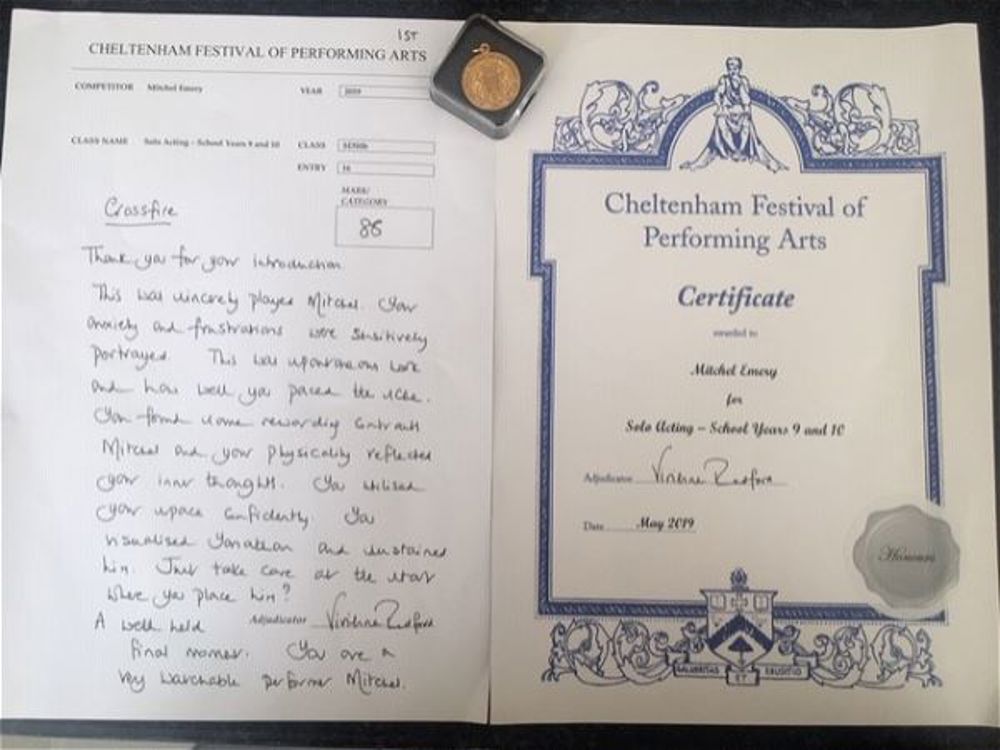 1ST
CHELTENHAM FESTIVAL OF PERFORMING ARTS
COMPETITOR Mitchel Emery YEAR 2019
CLASS NAME Solo Acting - School Years 9 and 10 CLASS
ENTRY 16
MARK/
CATEGORY
86
Crossfire
Thank you for your introduction
This was sincerely played Mitchel. Your
anxiety and frustrations were sensitively
portrayed. This was spontaneous work
and how well you paced the scene.
You found some rewarding contrasts
Mitchel and your physicality reflected
your inner thoughts. You utilised
your space confidently You
visualised Jonathan and sustained
him. Just take care at the start
where you place him?
A well held
Adjudicator Vivienne Redford
final moment. You are a
very watchable performer Mitchel.
Cheltenham Festival of
Performing Arts
Certificate
awarded to
Mitchel Emery
for
Solo Acting – School Years 9 and 10
Adjudicator Vivienne Redford
Date May 2019
Honours
SALUBRITAS ET ERUDITIO